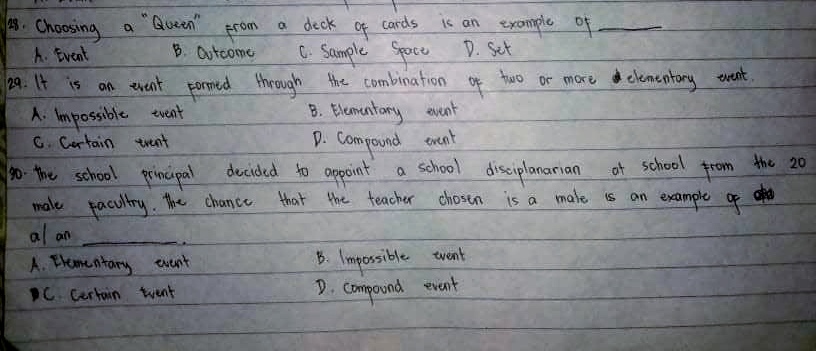 28. Choosing a "Queen" from a deck of cards is an example of ______
A. Event B. Outcome C. Sample Space D. Set
29. It is an event formed through the combination of two or more elementary event.
A. Impossible event B. Elementary event
C. Certain event D. Compound event
30. The school principal decided to appoint a school disciplanarian at school from the 20
male facultry. The chance that the teacher chosen is a male is an example of
a/ an ______.
A. Elementary event B. Impossible event
C. Certain Event D. Compound event